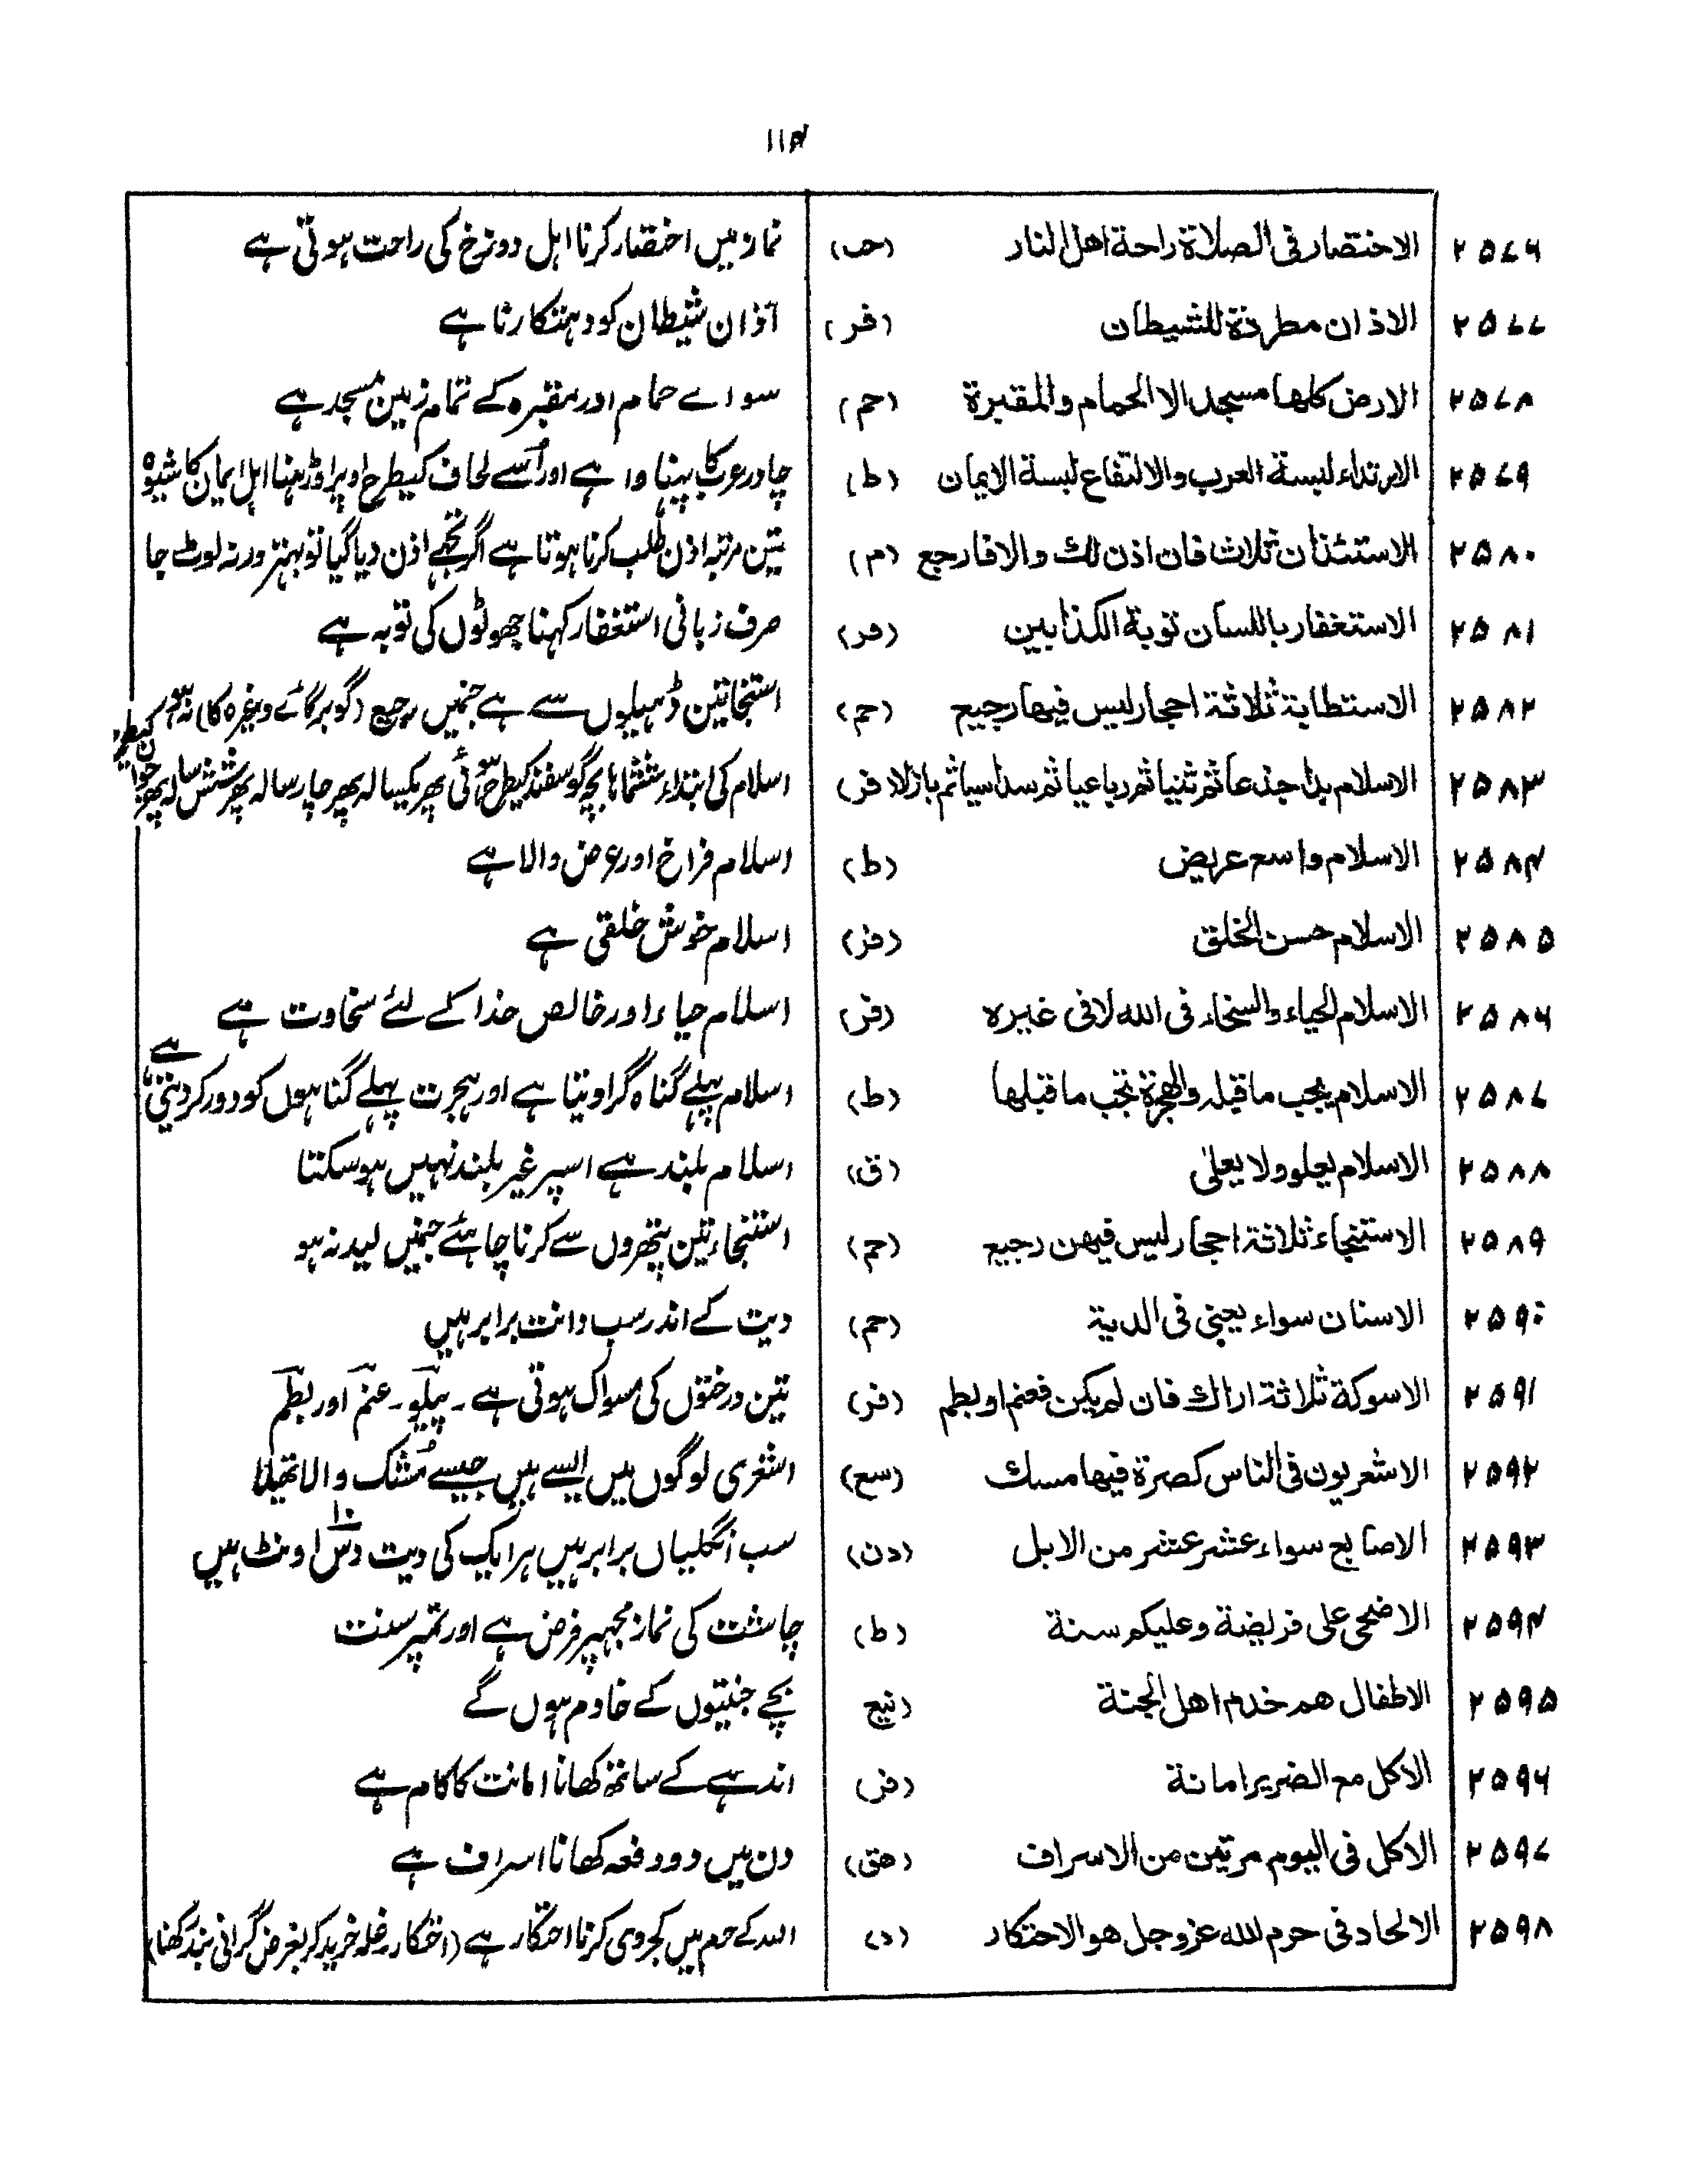 ۱۱۴
۲۵۷۶ الاختصار فی الصلاة راحة اهل النار (حب) نماز میں اختصار کرنا اہل دوزخ کی راحت ہوتی ہے
۲۵۷۷ الاذان مطردة للشیطان (فر) آذان شیطان کو دہتکارتا ہے
۲۵۷۸ الارض کلها مسجد الا الحمام والمقبرة (حم) سواے حمام اور مقبرہ کے تمام زمین مسجد ہے
۲۵۷۹ الارتداء لبسة العرب والالتفاع لبسة الایمان (ط) چادر عرب کا پہناوا ہے اور اُسے لحاف کیطرح اوپر اوڑہنا اہل ایمان کا شیوہ
۲۵۸۰ الاستئذان ثلاث فان اذن لک والا فارجع (م) تین مرتبہ اذن طلب کرنا ہوتا ہے اگر تجھے اذن دیا گیا تو بہتر ورنہ لوٹ جا
۲۵۸۱ الاستغفار باللسان توبة الکذابین (فر) صرف زبانی استغفار کہنا جھوٹوں کی توبہ ہے
۲۵۸۲ الاستطابة ثلاثة احجار لیس فیها رجیع (حم) استنجا تین ڈہیلوں سے ہے جنمیں رجیع (گوبر گائے وغیرہ کا) نہ ہو
۲۵۸۳ الاسلام بدا جذعا ثم ثنیا ثم رباعیا ثم سداسیا ثم بازلا (فر) اسلام کی ابتداء ششماہا بچہ گوسفند کیطرح ہوئی پھر یکسالہ پھر چار سالہ پھر شش سالہ پھر جوان کیطرح
۲۵۸۴ الاسلام واسع عریض (ط) اسلام فراخ اور عرض والا ہے
۲۵۸۵ الاسلام حسن الخلق (فر) اسلام خوش خلقی ہے
۲۵۸۶ الاسلام الحیاء والسخاء فی الله لا فی غیره (فر) اسلام حیاء اور خالص خدا کے لئے سخاوت ہے
۲۵۸۷ الاسلام یجب ما قبله والهجرة تجب ما قبلها (ط) اسلام پہلے گناہ گرا دیتا ہے اور ہجرت پہلے گناہوں کو دور کر دیتی ہے
۲۵۸۸ الاسلام یعلو ولا یعلیٰ (ق) اسلام بلند ہے اسپر غیر بلند نہیں ہو سکتا
۲۵۸۹ الاستنجاء ثلاثة احجار لیس فیهن رجیع (حم) استنجاء تین پتھروں سے کرنا چاہئے جنمیں لید نہ ہو
۲۵۹۰ الاسنان سواء یعنی فی الدیة (حم) دیت کے اندر سب دانت برابر ہیں
۲۵۹۱ الاسوکة ثلاثة اراک فان لم یکن فعنم او بطم (فر) تین درختوں کی مسواک ہوتی ہے ۔ پیلو ۔ عنم اور بطم
۲۵۹۲ الاشعریون فی الناس کصرة فیها مسک (سع) اشعری لوگوں میں ایسے ہیں جیسے مُشک والا تھیلا
۲۵۹۳ الاصابع سواء عشر عشر من الابل (دن) سب انگلیاں برابر ہیں ہر ایک کی دیت دس ۱۰ اونٹ ہیں
۲۵۹۴ الاضحی علی فریضة وعلیکم سنة (ط) چاشت کی نماز مجھپر فرض ہے اور تمپر سنت
۲۵۹۵ الاطفال هم خدم اهل الجنة بچے جنتیوں کے خادم ہوں گے
۲۵۹۶ الاکل مع الضریر امانة (فر) اندہے کے ساتھ کھانا امانت کا کام ہے
۲۵۹۷ الاکل فی الیوم مرتین من الاسراف (هق) دن میں دو دفعہ کھانا اسراف ہے
۲۵۹۸ الالحاد فی حرم الله عزوجل هو الاحتکار (د) اللہ کے حرم میں کجروی کرنا احتکار ہے (احتکار غلہ خرید کر بغرض گرانی بند رکھنا)